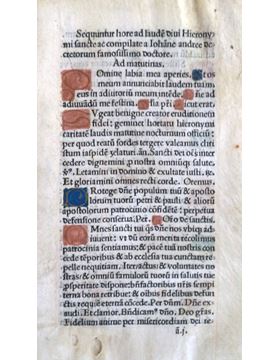 Sequuntur hore ad laudē diui Hierony
mi sancte ac compilate a Iohāne andree de
cretorum famosissimo doctore.
Ad matutinas.
Domine labia mea aperies. Et os
meum annunciabit laudem tuam.
Deus in adiutoriū meum intēde. Dn̄e ad
adiuuādū me festina. Gl̄ia pr̄i. Sicut erat.
fidei: geminet hortatu hieronymi
caritatē laudis matutine nocturnum officiū:
per quod reatū sordes tergere valeamus chri
stum iaspidē zelaturi. añ. Sancti dei oēs interce
dere dignemini pro nostra omniūqꝫ salute.
Letamini in domino & exultate iusti.
Et gloriamini omnes recti corde. Oremus.
Protege dn̄e populum tuū & apo
stolorum tuorū petri & pauli & aliorū
apostolorum patrocinio cōfidētē: perpetua
defensione conserua. Per. De oīb9 sanctis.
Omnes sancti tui q̄s dn̄e nos vbiqꝫ ad
iuuent: vt dū eorū merita recolimus
patrocinia sentiamus: & pacē tuā nostris con
cede tēporibus & ab ecclesia tua cunctam re
pelle nequitiam. Iter actus & voluntates no
stras & omniū famulorū tuorū in salutis tue
prosperitate dispone: bn̄factoribus nr̄is sempi
terna bona retribue: & oībus fidelibus defunctis
requiem eternā concede. Per dn̄m. Dn̄e exau
di. Et clamor. Bn̄dicam9 dn̄o. Deo gr̄as.
Fidelium anime per misericordiam dei re